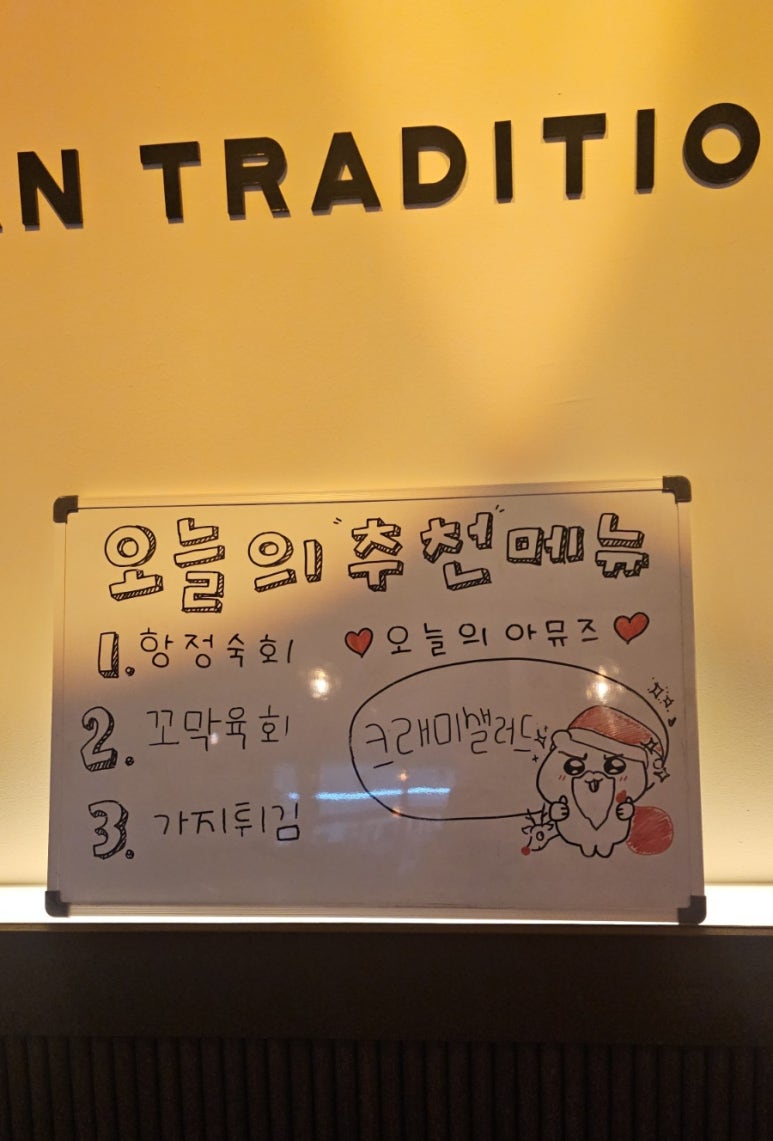 AN TRADITIO
오늘의 "추천" 메뉴
1. 항정숙회
2. 꼬막육회
3. 가지튀김
오늘의 아뮤즈
크래미샐러드